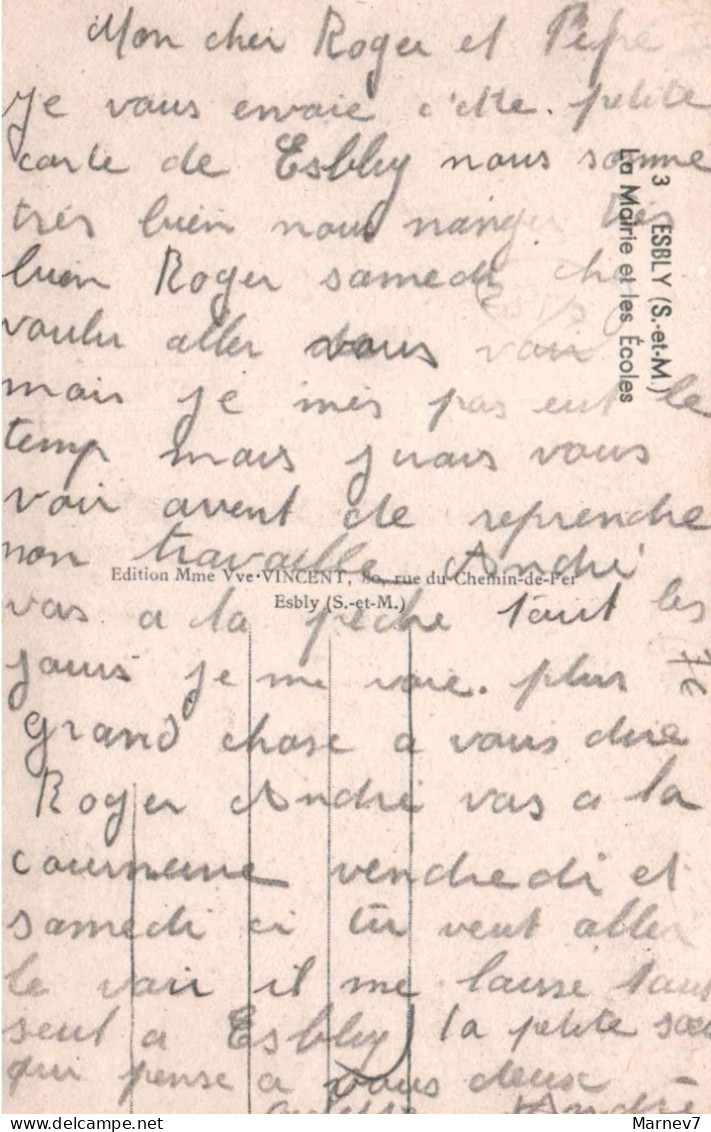 Mon cher Roger et Pépé
Je vous envoie c'ette. petite
carte de Esbly nous somme
très bien nous manger très
bien Roger samedi
voulu aller vous voir
mais je mes pas eut le
temp mais jirais vous
voir avent de reprendre
mon travaille André
vas a la pêche tout les
jours je me voie. plus
grand chose a vous dire
Roger André vas a la
courneuve vendredi et
samedi ci tu veut aller
le voir il me laisse tout
seul a Esbly la petite
qui pense a vous deux
André
3 ESBLY (S.-et-M.)
La Mairie et les Écoles
Edition Mme Vve VINCENT, 80, rue du Chemin-de-Fer
Esbly (S.-et-M.)
Marnev7